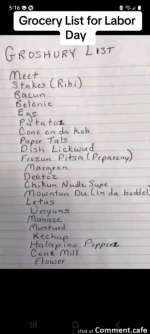 5:16
Grocery List for Labor
Day
GROSHURY LIST
Meet
Stakes (Ribi)
Bacun
Belonie
Egs
Putatoz
Conc on da kob
Paper Tals
Dish Lickwud
Frozun Pitsa (Peparomy)
Margren
Deetoz
Chikun Nudle Supe
Mountan Du (in da boddel)
Letus
Unyuns
Manaze
Musturd
Kechup
Halapino Peppers
Corn Mill
Flower
chat at Comment.cafe